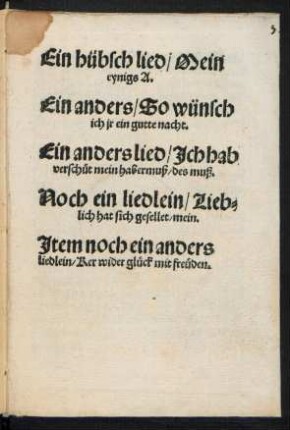 3.
Ein hübsch lied/Mein
eynigs A.
Ein anders/So wünsch
ich jr ein gutte nacht.
Ein anders lied/Ich hab
verschüt mein habermuß/des muß.
Noch ein liedlein/Lieb-
lich hat sich gesellet/mein.
Item noch ein anders
liedlein/Ker wider glück mit freüden.